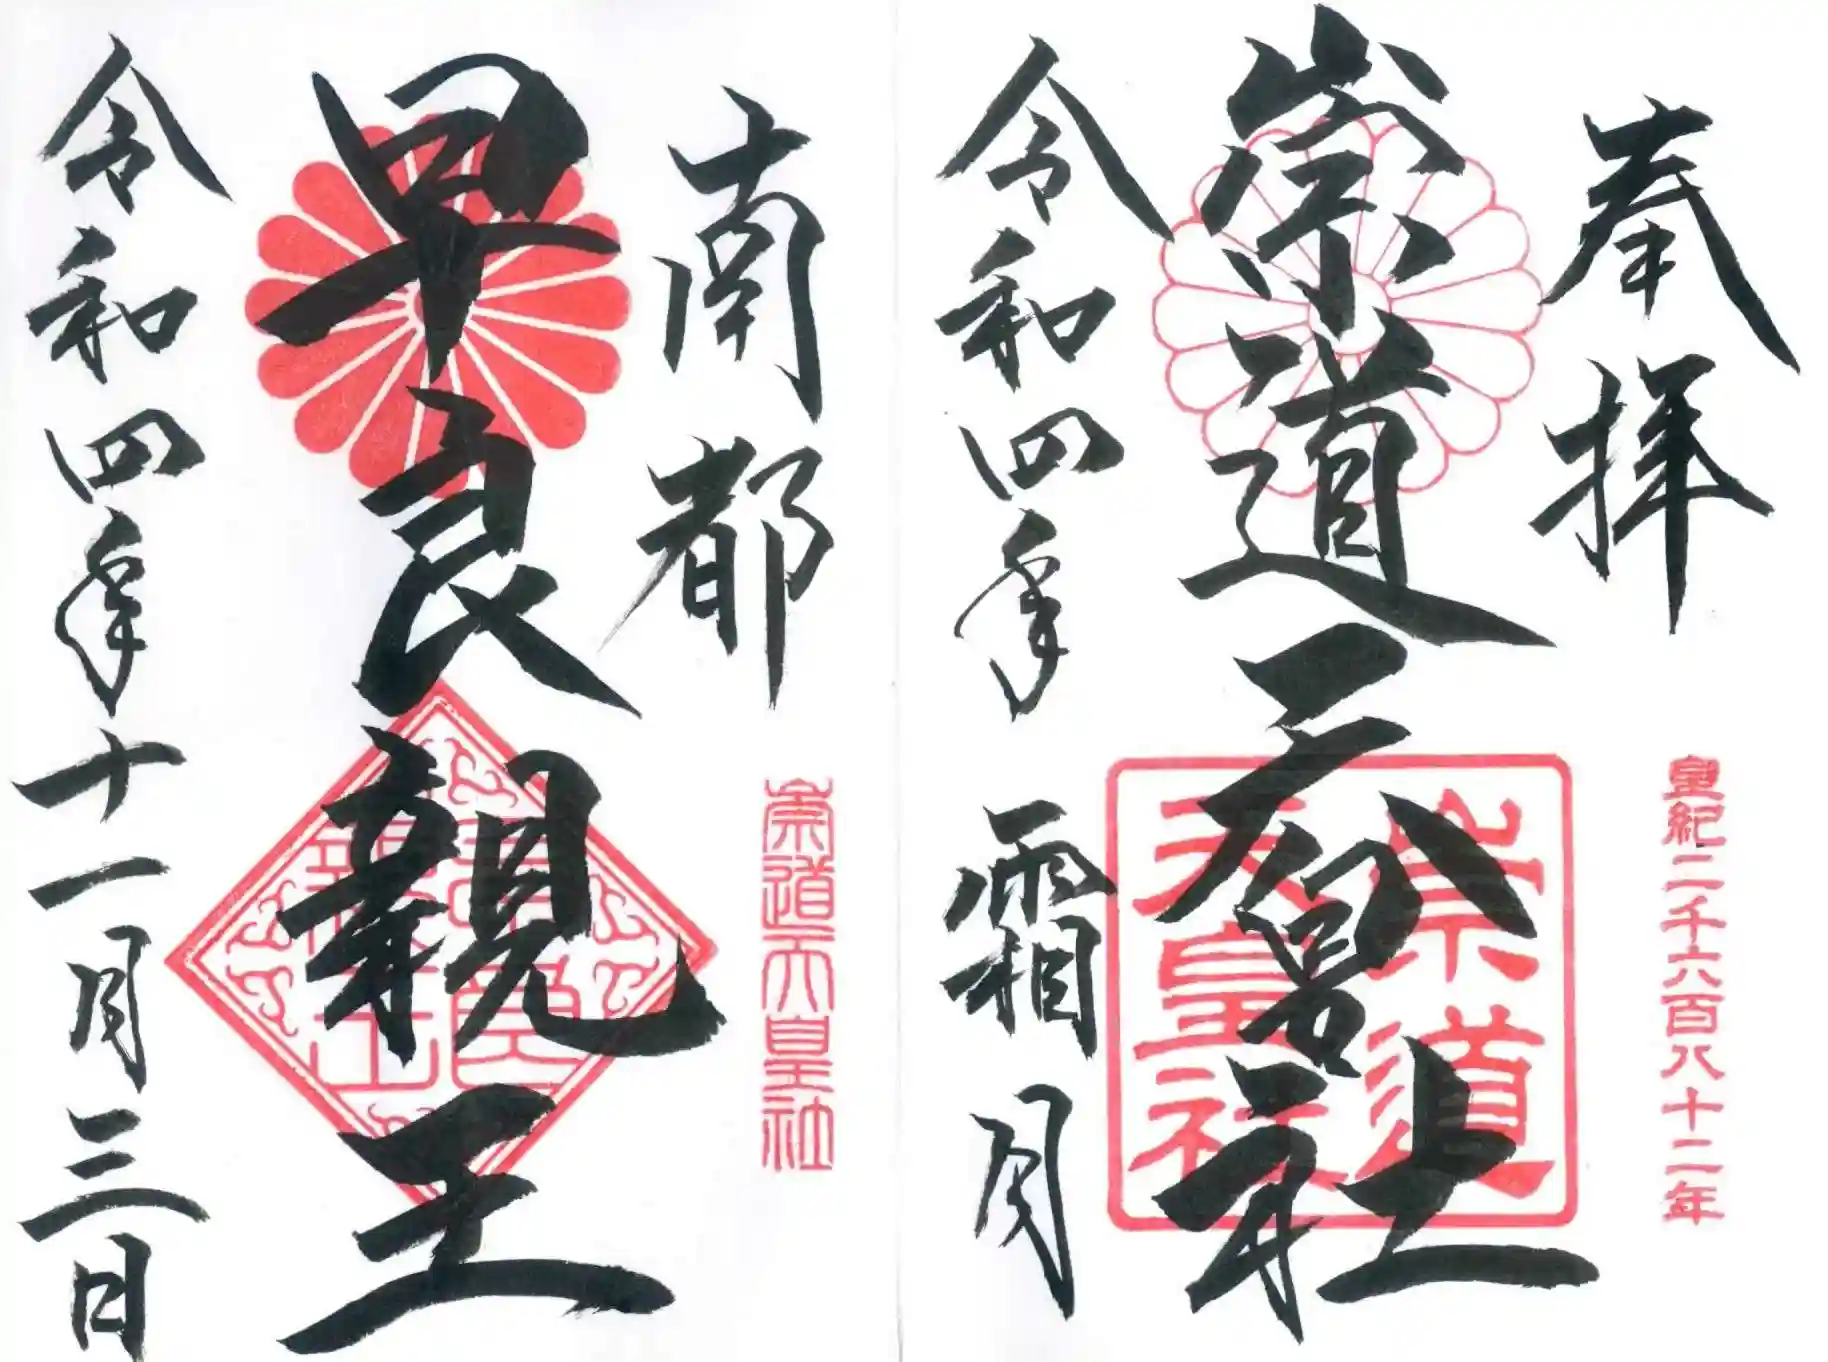 奉拝
皇紀二千六百八十二年
崇道天皇社
崇道
天皇社
令和四年
霜月
南都
崇道天皇社
早良親王
早良
親王
令和四年十一月三日